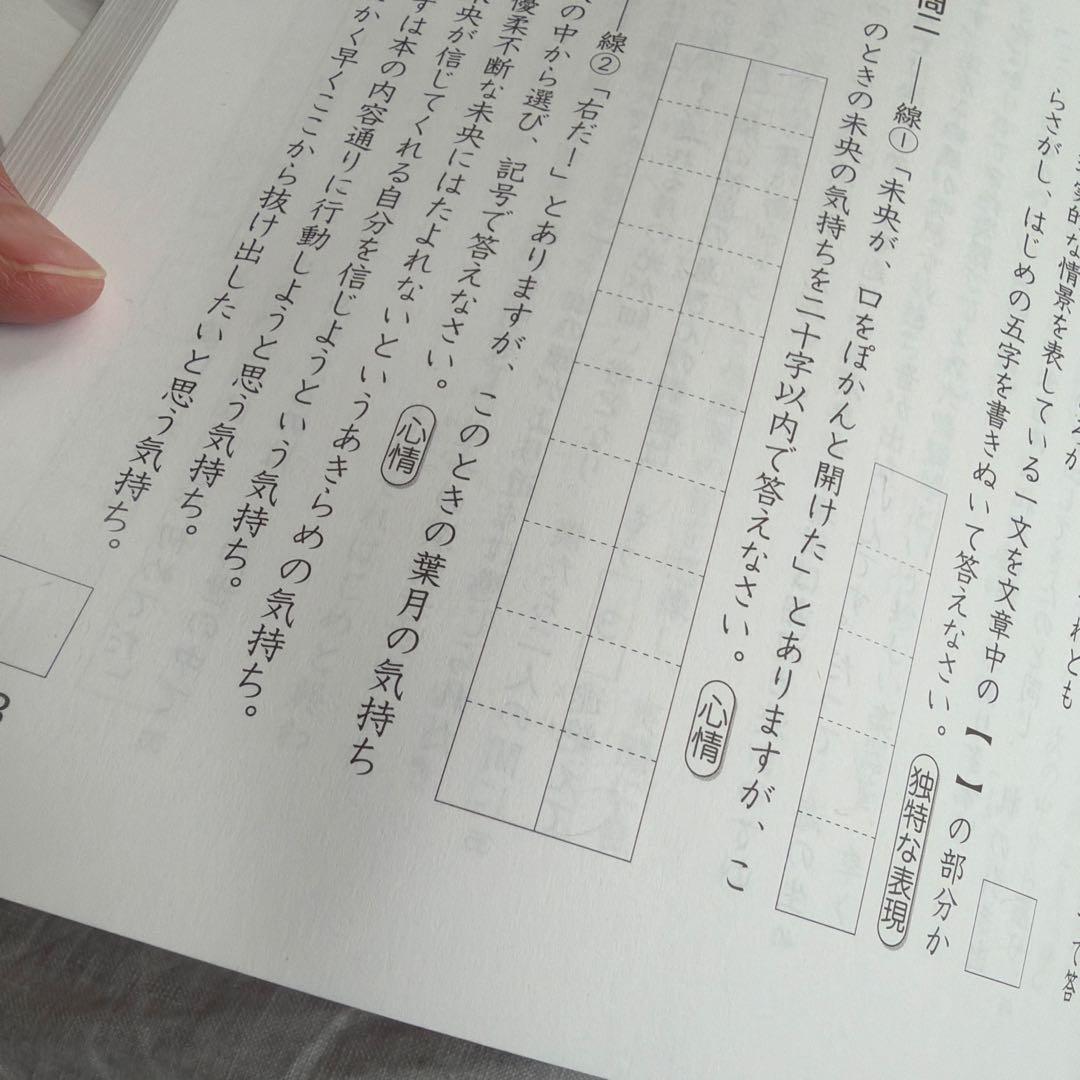 て答
的な情景を表している一文を文章中の【 】の部分か
らさがし、はじめの五字を書きぬいて答えなさい。
独特な表現
問二 ——線①「未央が、口をぽかんと開けた」とありますが、こ
のときの未央の気持ちを二十字以内で答えなさい。
心情
——線②「右だ!」とありますが、このときの葉月の気持ち
の中から選び、記号で答えなさい。
心情
優柔不断な未央にはたよれないというあきらめの気持ち。
未央が信じてくれる自分を信じようという気持ち。
ずは本の内容通りに行動しようと思う気持ち。
かく早くここから抜け出したいと思う気持ち。